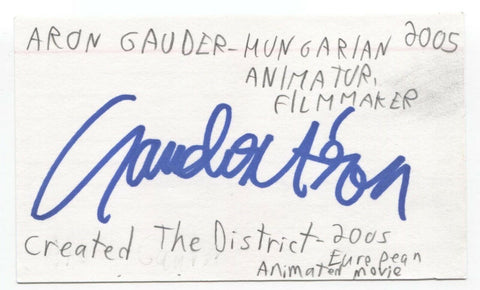 ARON GAUDER-HUNGARIAN 2005
ANIMATUR,
FILMMAKER
Gauder Áron
Created The District-2005
European
Animated movie